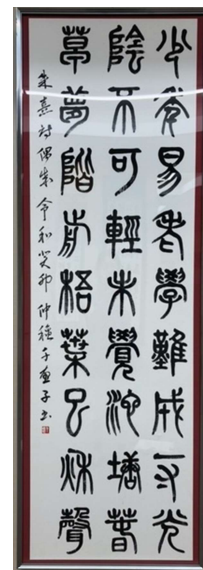 少年易老學難成一寸光
陰不可輕未覺池塘春
草夢階前梧葉已秋聲
朱熹詩偶成 令和癸卯 仲穐 千恵子書